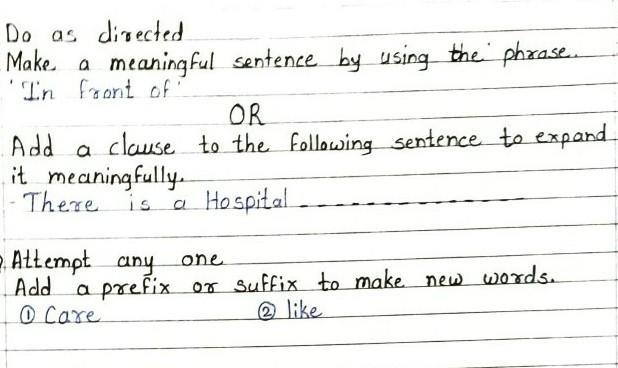 Do as directed
Make a meaningful sentence by using the phrase.
'In front of'
OR
Add a clause to the following sentence to expand
it meaningfully.
- There is a Hospital ---------------
Attempt any one
Add a prefix or suffix to make new words.
① Care ② like